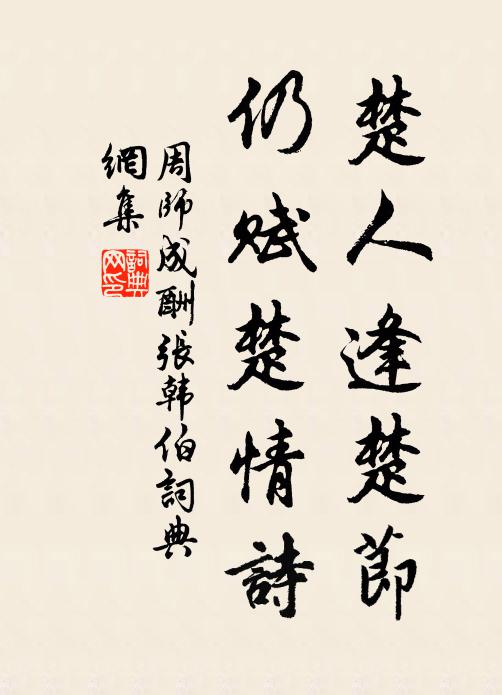 楚人逢楚節
仍赋楚情詩
周師成酬張韩伯詞典
網集
詞典
网印